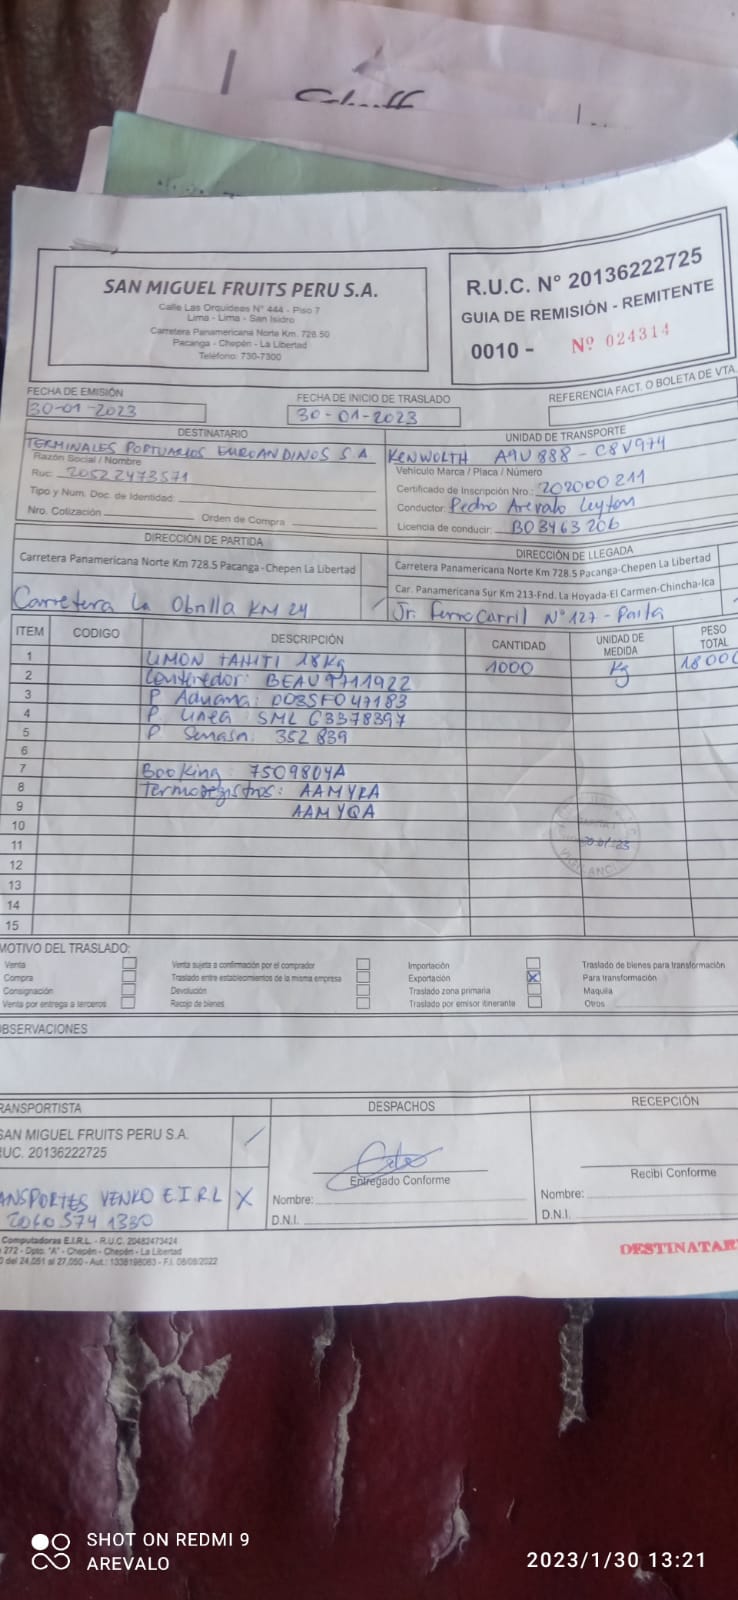 SAN MIGUEL FRUITS PERU S.A.
Calle Las Orquideas N° 444 - Piso 7
Lima - Lima - San Isidro
Carretera Panamericana Norte Km. 728.50
Pacanga - Chepén - La Libertad
Teléfono: 730-7300
R.U.C. N° 20136222725
GUIA DE REMISIÓN - REMITENTE
0010 - Nº 024314
FECHA DE EMISIÓN
30-01-2023
FECHA DE INICIO DE TRASLADO
30-01-2023
REFERENCIA FACT. O BOLETA DE VTA.
DESTINATARIO
TERMINALES PORTUARIOS EUROANDINOS S.A
Razón Social / Nombre
Ruc: 20522473571
Tipo y Num. Doc. de Identidad:
Nro. Cotización Orden de Compra
UNIDAD DE TRANSPORTE
KENWORTH A9U 888 - C8V974
Vehículo Marca / Placa / Número
Certificado de Inscripción Nro.: 202000211
Conductor: Pedro Arevalo Leyton
Licencia de conducir: B03463206
DIRECCIÓN DE PARTIDA
Carretera Panamericana Norte Km 728.5 Pacanga-Chepen La Libertad
Carretera La Obrilla KM 24
DIRECCIÓN DE LLEGADA
Carretera Panamericana Norte Km 728.5 Pacanga-Chepen La Libertad
Car. Panamericana Sur Km 213-Fnd. La Hoyada-El Carmen-Chincha-Ica
Jr. Ferrocarril N°127 - Paita
ITEM CODIGO DESCRIPCIÓN CANTIDAD UNIDAD DE MEDIDA PESO TOTAL
1 LIMON TAHITI 18Kg 1000 Kg 18000
2 Contenedor: BEAU 9711922
3 P Aduana: 003SF047183
4 P. Linea: SML C3378397
5 P Senasa: 352839
6
7 Booking: 7509804A
8 Termoregistros: AAMYRA
9 AAMYQA
10
11
12
13
14
15
30-01-23
MOTIVO DEL TRASLADO:
Venta
Compra
Consignación
Venta por entrega a terceros
Venta sujeta a confirmación por el comprador
Traslado entre establecimientos de la misma empresa
Devolución
Recojo de bienes
Importación
Exportación X
Traslado zona primaria
Traslado por emisor itinerante
Traslado de bienes para transformación
Para transformación
Maquila
Otros
OBSERVACIONES
RANSPORTISTA
SAN MIGUEL FRUITS PERU S.A.
UC. 20136222725
ANSPORTES VENKO E.I.R.L X
20605741330
DESPACHOS
Entregado Conforme
Nombre:
D.N.I.
RECEPCIÓN
Recibí Conforme
Nombre:
D.N.I.
Computadoras E.I.R.L. - R.U.C. 20482473424
272 - Dpto. "A" - Chepén - Chepén - La Libertad
0 del 24,051 al 27,050 - Aut.: 1338198063 - F.I. 08/08/2022
DESTINATAR
SHOT ON REDMI 9
AREVALO
2023/1/30 13:21